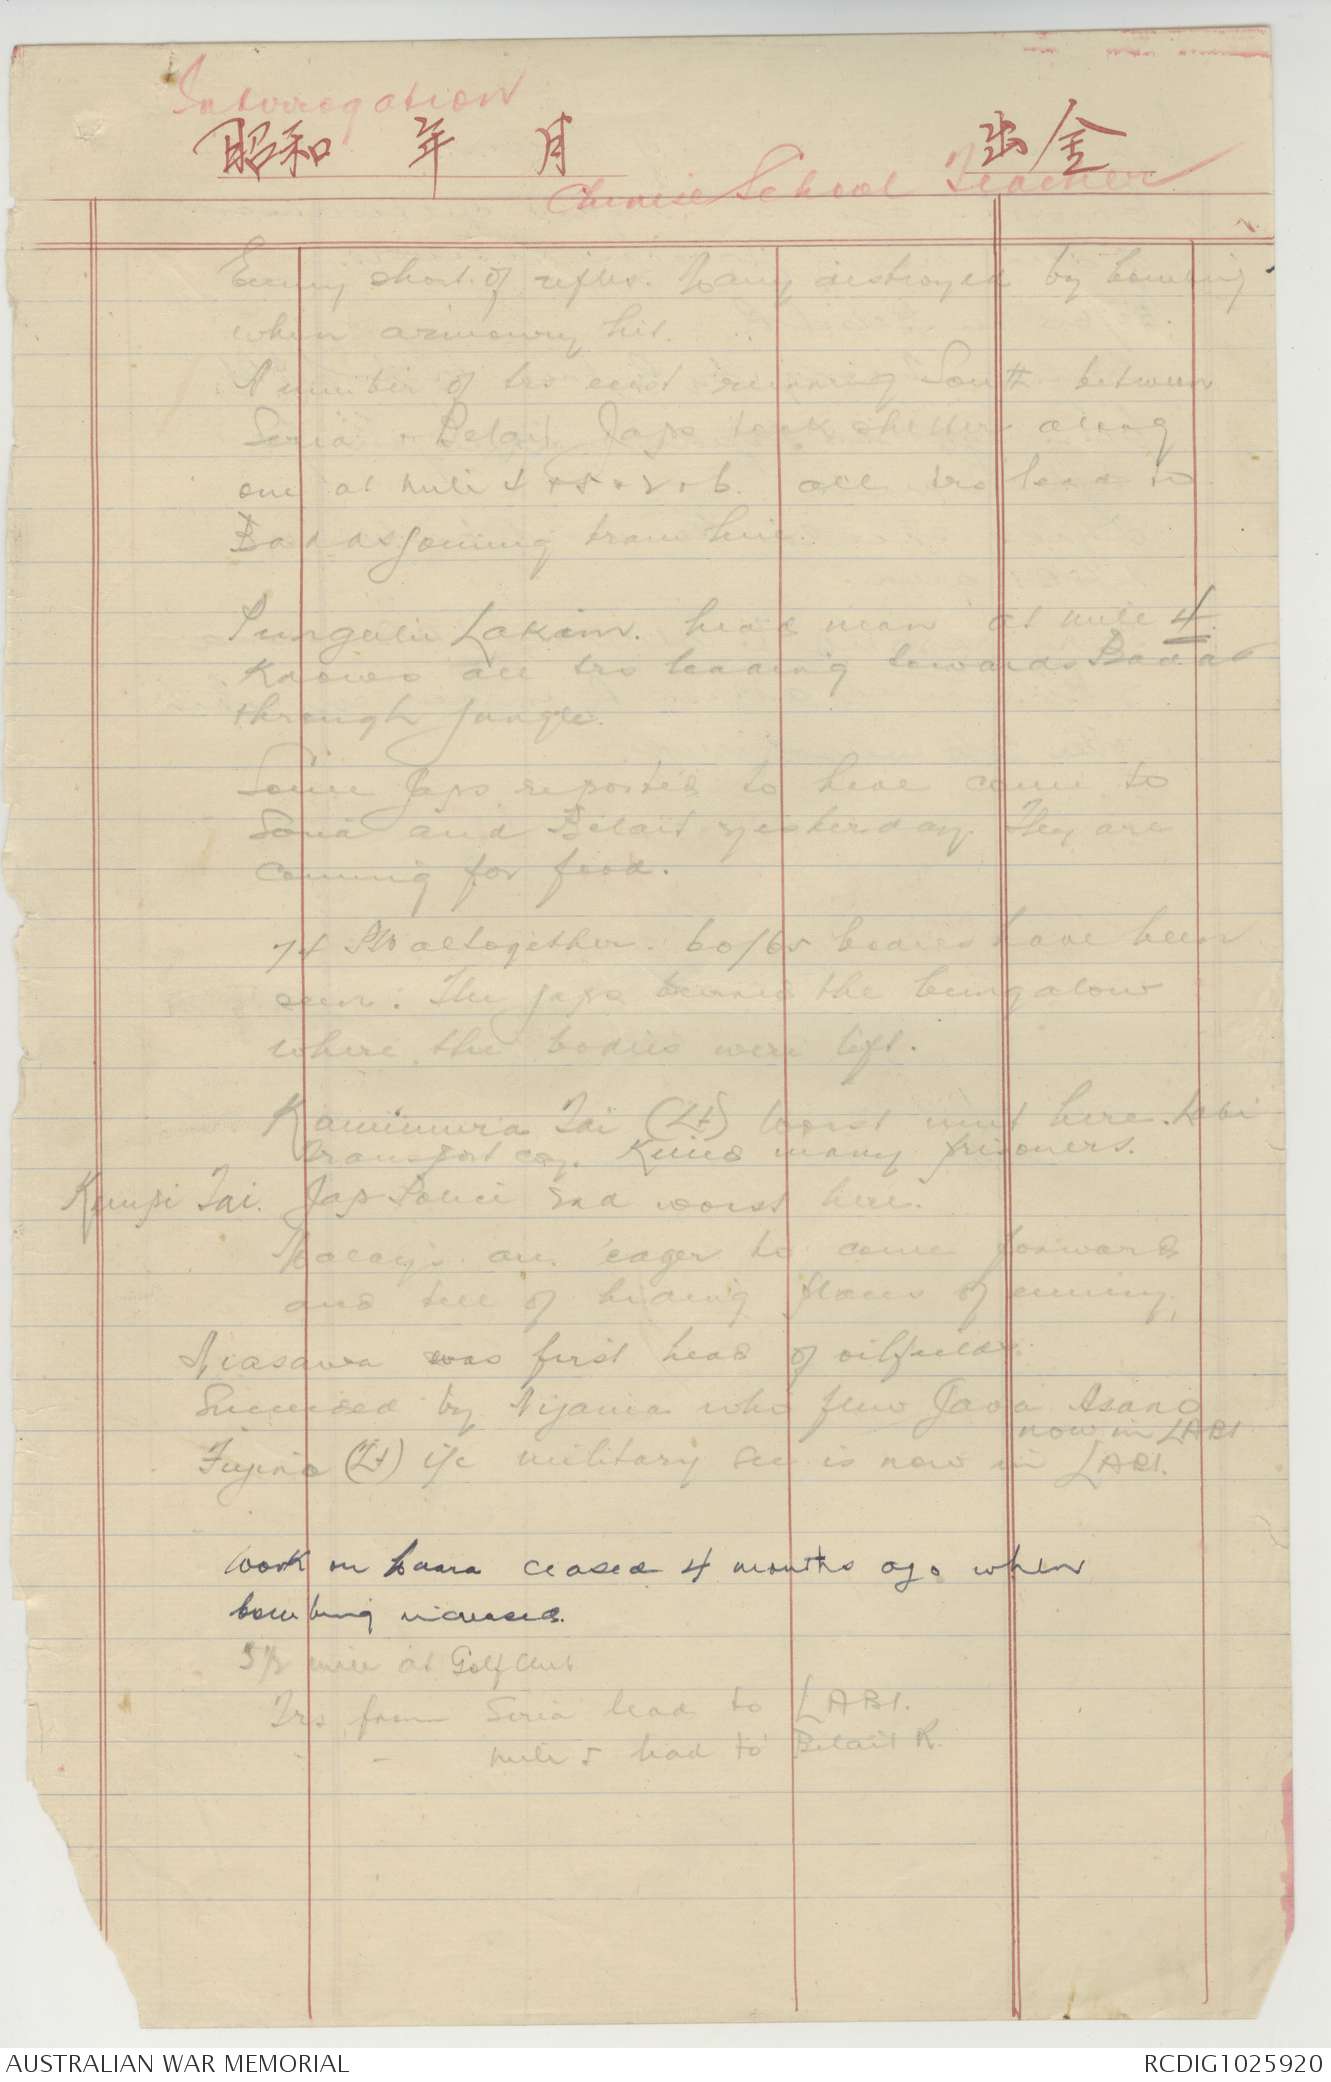 Interrogation
昭和 年 月 出金
Chinese School Teacher
Enemy short of rifles. Many destroyed by bombing
when armoury hit.
A number of trs exist running South between
Seria + Belait. Japs took shelter along
one at mile all trs lead to
Badas joining tram line.
Pungulu Lakim. head man at mile 4.
Knows all trs leading towards Badas
through jungle.
Some Japs reported to have come to
Seria and Belait yesterday. They are
coming for food.
74 PW altogether. 60/65 bodies have been
seen. The japs burned the bungalow
where the bodies were left.
Kamimura Tai (Lt) worst unit here. Labi
Transport coy. Killed many prisoners.
Kempi Tai. Jap Police 2nd worst here.
Malays are eager to come forward
and tell of hiding places of enemy.
was first head of oilfields.
Succeeded by who flew Java Asano
now in LABI
Fujino (Lt) i/c military sec is now in LABI.
Work on ceased 4 months ago when
bombing increased.
5½ mile at Golf Club
Trs from Seria lead to LABI.
" - mile 5 lead to Belait R.